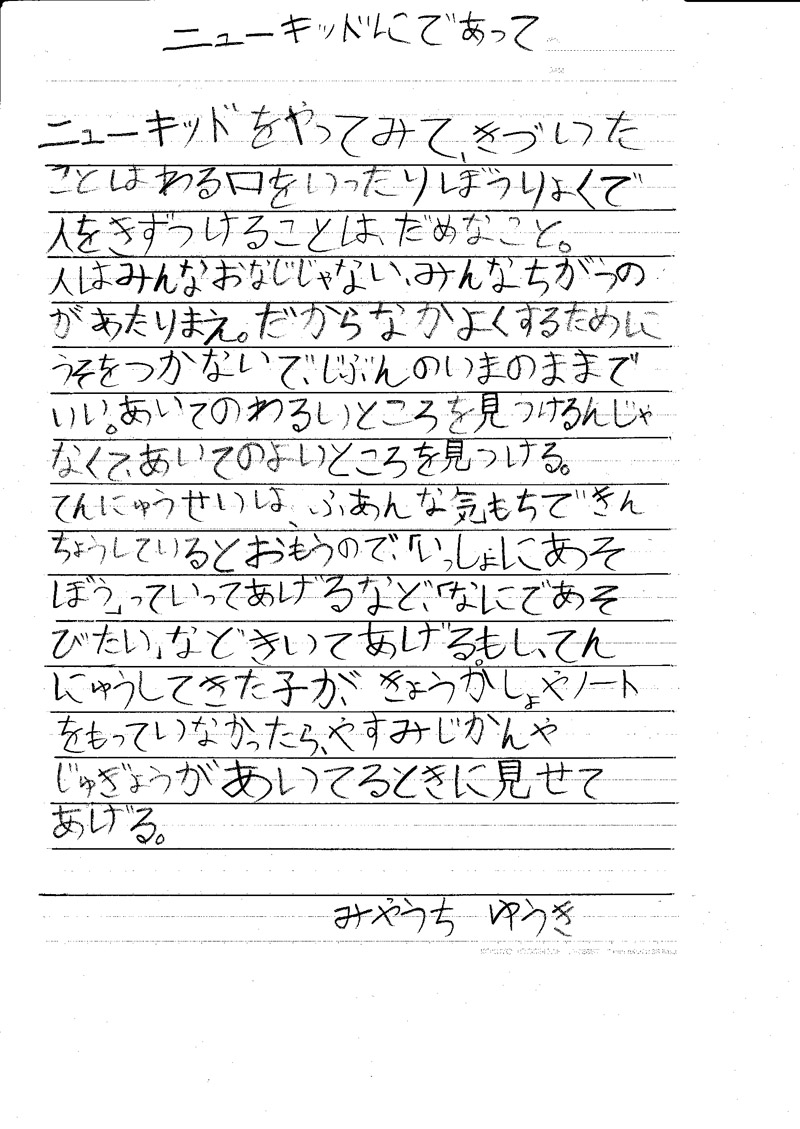 ニューキッドにであって
ニューキッドをやってみて、きづいった
ことはわる口をいったりぼうりょくで
人をきずつけることは、だめなこと。
人はみんなおなじじゃない、みんなちがうの
があたりまえ。だからなかよくするために
うそをつかないで、じぶんのいまのままで
いい。あいてのわるいところを見つけるんじゃ
なくて、あいてのよいところを見つける。
てんにゅうせいは、ふあんな気もちできん
ちょうしているとおもうので、「いっしょにあそ
ぼう」っていってあげるなど、「なにであそ
びたい」などきいてあげる。もし、てん
にゅうしてきた子が、きょうかしょやノート
をもっていなかったら、やすみじかんや
じゅぎょうがあいてるときに見せて
あげる。
みやうち ゆうき